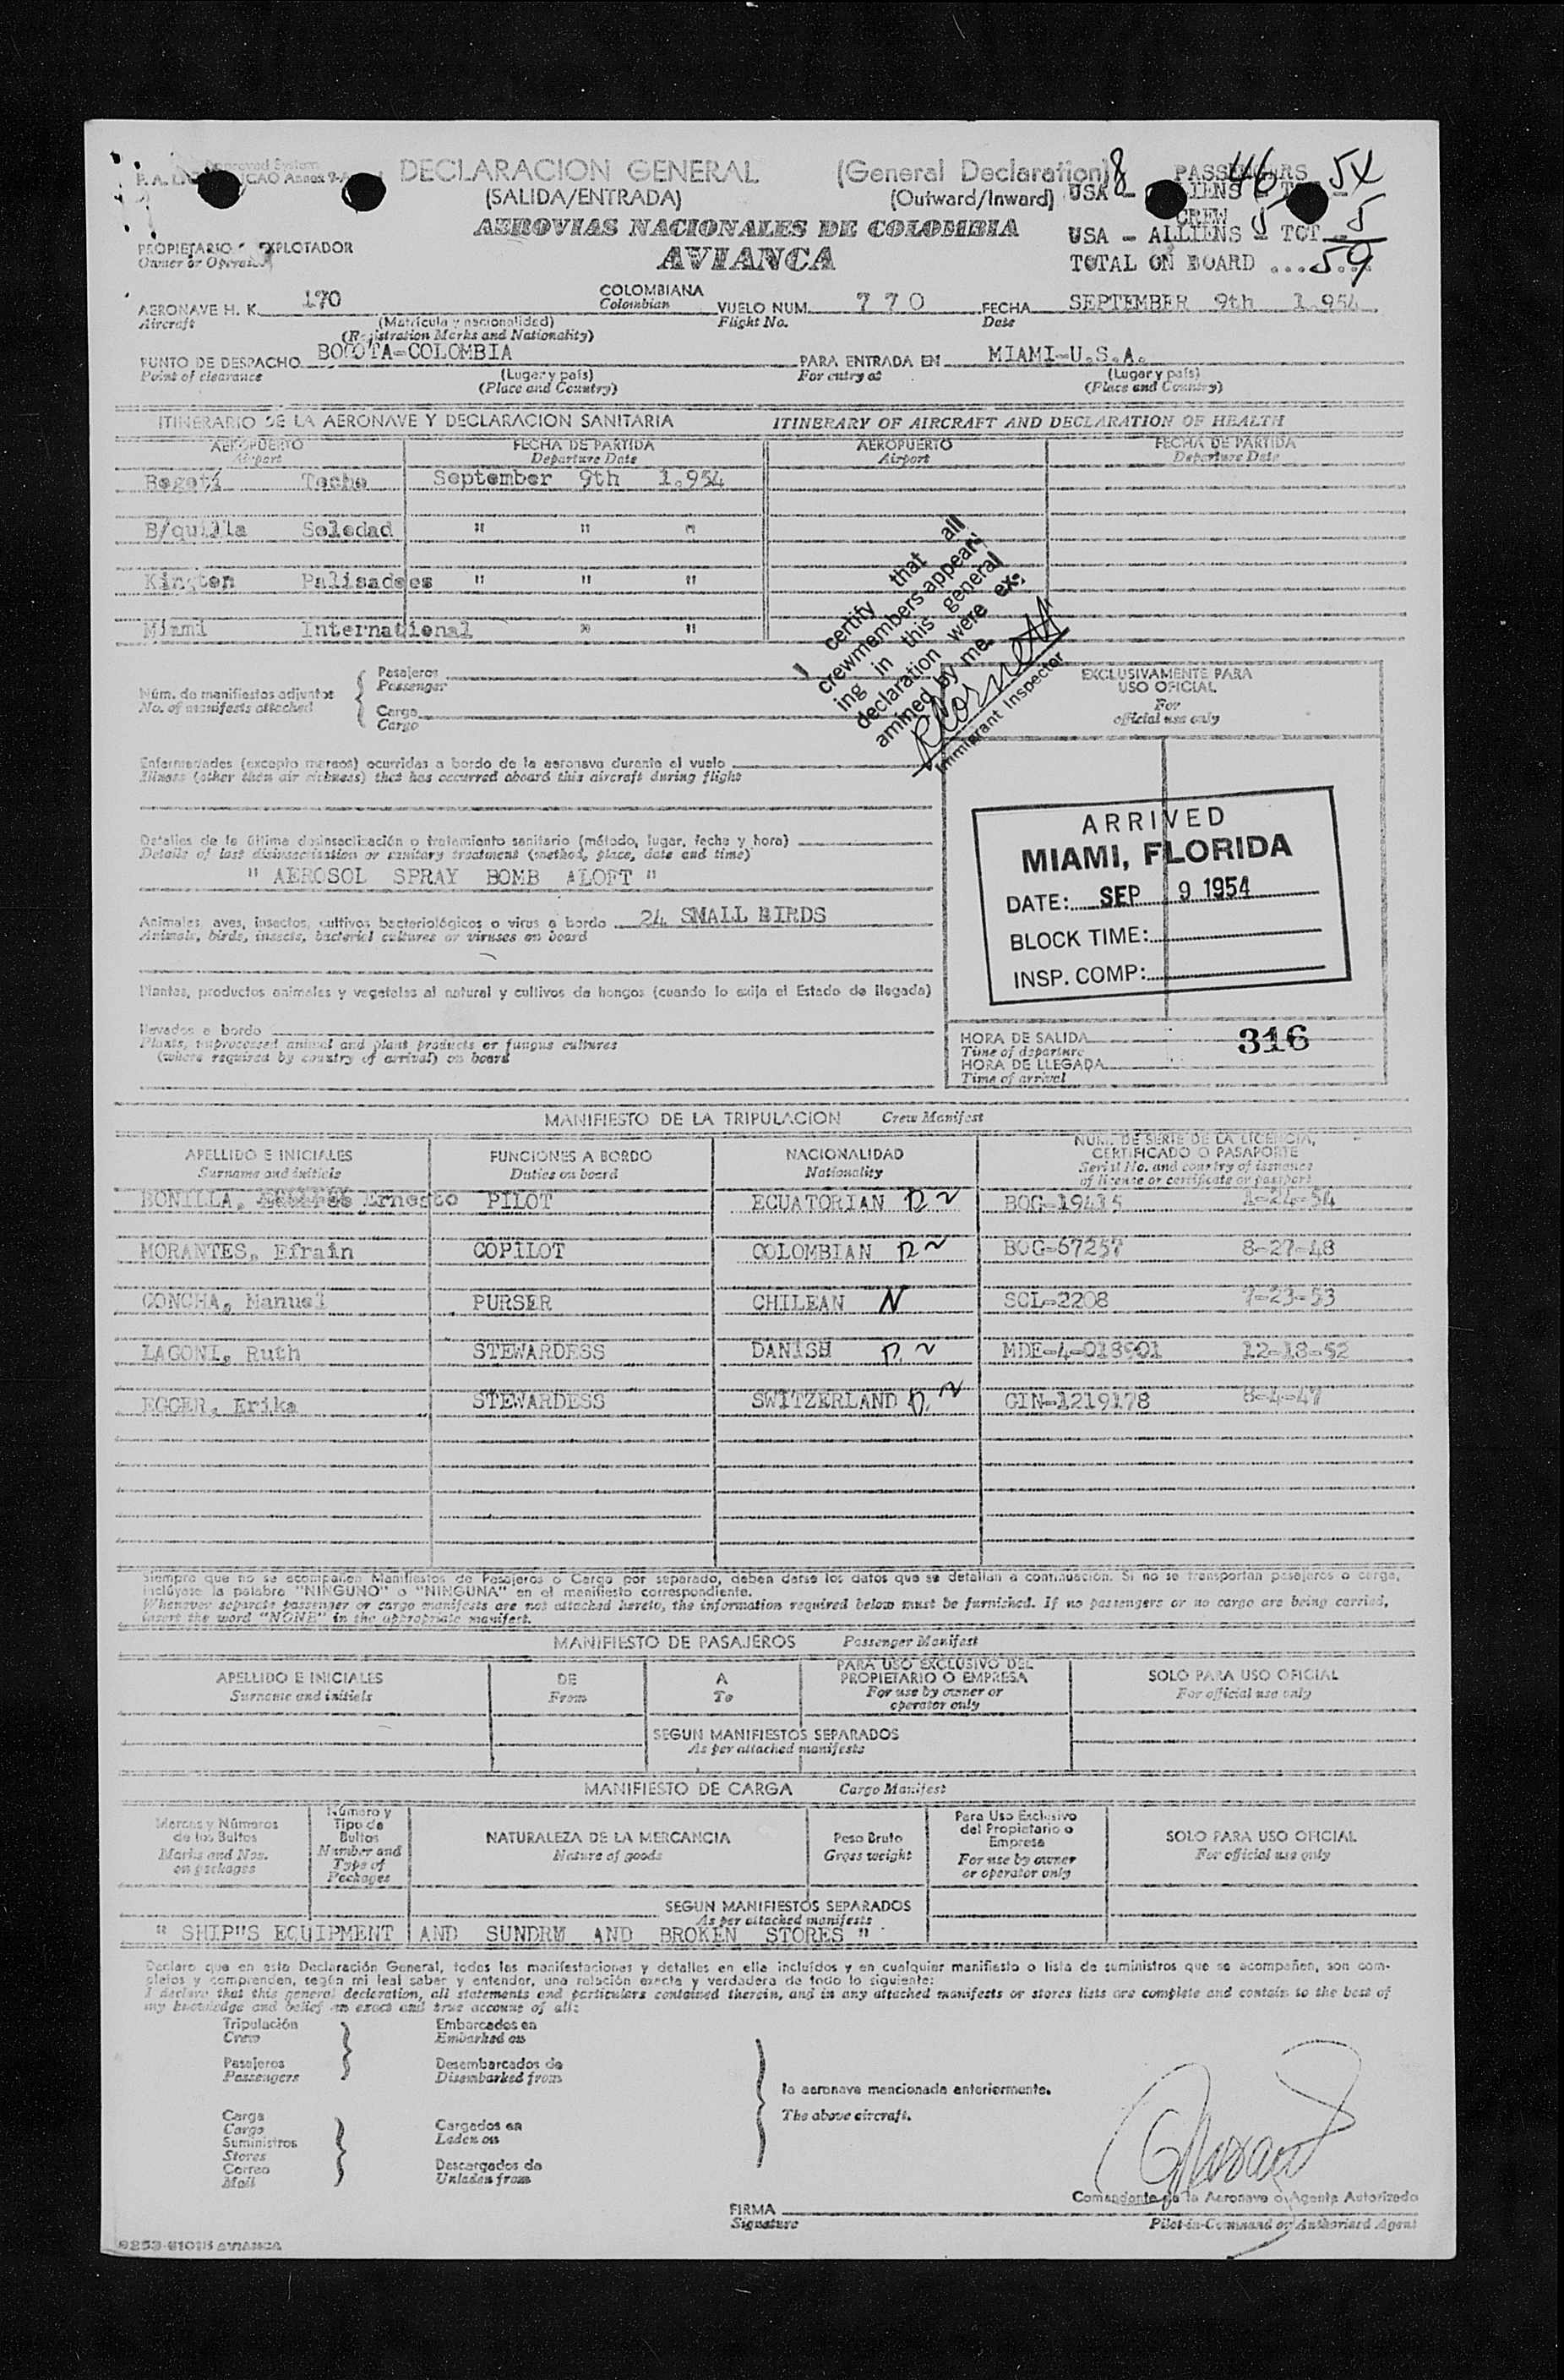 Approved System
DECLARACION GENERAL (General Declaration)
(SALIDA/ENTRADA) (Outward/Inward)
AEROVIAS NACIONALES DE COLOMBIA
AVIANCA
PASSENGERS
USA 8 - ALIENS 46 TOT - 54
CREW
USA - ALLIENS 5 - TOT 5
TOTAL ON BOARD ...59
PROPIETARIO O EXPLOTADOR
Owner or Operator
AERONAVE H. K. 170 COLOMBIANA VUELO NUM. 770 FECHA SEPTEMBER 9th 1.954
Aircraft (Matrícula y nacionalidad) Colombian Flight No. Date
(Registration Marks and Nationality)
PUNTO DE DESPACHO BOGOTA-COLOMBIA PARA ENTRADA EN MIAMI-U.S.A.
Point of clearance (Lugar y país) For entry at (Lugar y país)
(Place and Country) (Place and Country)
ITINERARIO DE LA AERONAVE Y DECLARACION SANITARIA ITINERARY OF AIRCRAFT AND DECLARATION OF HEALTH
AEROPUERTO FECHA DE PARTIDA AEROPUERTO FECHA DE PARTIDA
Airport Departure Date Airport Departure Date
Bogotá Techo September 9th 1.954
B/quilla Soledad " " "
Kington Palisadoes " " "
Miami International " "
I certify that all
crewmembers appear-
ing in this general
declaration were ex-
amined by me.
Immigrant Inspector
Núm. de manifiestos adjuntos
No. of manifests attached
Pasajeros
Passenger
Carga
Cargo
EXCLUSIVAMENTE PARA
USO OFICIAL
For
official use only
Enfermedades (excepto mareos) ocurridas a bordo de la aeronave durante el vuelo
Illness (other then air sickness) that has occurred aboard this aircraft during flight
Detalles de la última desinsectización o tratamiento sanitario (método, lugar, fecha y hora)
Details of last disinsectisation or sanitary treatment (method, place, date and time)
" AEROSOL SPRAY BOMB ALOFT "
Animales, aves, insectos, cultivos bacteriológicos o virus a bordo 24 SMALL BIRDS
Animals, birds, insects, bacterial cultures or viruses on board
ARRIVED
MIAMI, FLORIDA
DATE: SEP 9 1954
BLOCK TIME:
INSP. COMP:
Plantas, productos animales y vegetales al natural y cultivos de hongos (cuando lo exija el Estado de llegada)
llevados a bordo
Plants, unprocessed animal and plant products or fungus cultures
(where required by country of arrival) on board
HORA DE SALIDA 316
Time of departure
HORA DE LLEGADA
Time of arrival
MANIFIESTO DE LA TRIPULACION Crew Manifest
APELLIDO E INICIALES FUNCIONES A BORDO NACIONALIDAD NUM. DE SERIE DE LA LICENCIA, CERTIFICADO O PASAPORTE
Surname and initials Duties on board Nationality Serial No. and country of issuance of license or certificate or passport
BONILLA, Ernesto PILOT ECUATORIAN BOG-19415 1-24-54
MORANTES, Efrain COPILOT COLOMBIAN BOG-67257 8-27-48
CONCHA, Manuel PURSER CHILEAN N SCL-2208 7-23-53
LAGONI, Ruth STEWARDESS DANISH MDE-4-018901 12-18-52
EGGER, Erika STEWARDESS SWITZERLAND GIN-1219178 8-4-47
Siempre que no se acompañen Manifiestos de Pasajeros o Carga por separado, deben darse los datos que se detallan a continuación. Si no se transportan pasajeros o carga,
inclúyase la palabra "NINGUNO" o "NINGUNA" en el manifiesto correspondiente.
Whenever separate passenger or cargo manifests are not attached hereto, the information required below must be furnished. If no passengers or no cargo are being carried,
insert the word "NONE" in the appropriate manifest.
MANIFIESTO DE PASAJEROS Passenger Manifest
APELLIDO E INICIALES DE A PARA USO EXCLUSIVO DEL PROPIETARIO O EMPRESA SOLO PARA USO OFICIAL
Surname and initials From To For use by owner or operator only For official use only
SEGUN MANIFIESTOS SEPARADOS
As per attached manifests
MANIFIESTO DE CARGA Cargo Manifest
Marcas y Números de los Bultos Número y Tipo de Bultos NATURALEZA DE LA MERCANCIA Peso Bruto Para Uso Exclusivo del Propietario o Empresa SOLO PARA USO OFICIAL
Marks and Nos. on packages Number and Type of Packages Nature of goods Gross weight For use by owner or operator only For official use only
SEGUN MANIFIESTOS SEPARADOS
As per attached manifests
" SHIP"S EQUIPMENT AND SUNDRW AND BROKEN STORES "
Declaro que en esta Declaración General, todas las manifestaciones y detalles en ella incluídos y en cualquier manifiesto o lista de suministros que se acompañen, son com-
pletos y comprenden, según mi leal saber y entender, una relación exacta y verdadera de todo lo siguiente:
I declare that this general declaration, all statements and particulars contained therein, and in any attached manifests or stores lists are complete and contain to the best of
my knowledge and belief an exact and true account of all:
Tripulación Embarcados en
Crew Embarked on
Pasajeros Desembarcados de
Passengers Disembarked from
la aeronave mencionada anteriormente.
The above aircraft.
Carga
Cargo Cargados en
Suministros Laden on
Stores
Correo Descargados de
Mail Unladen from
FIRMA
Signature
Comandante de la Aeronave o Agente Autorizado
Pilot-in-Command or Authorized Agent
AVIANCA